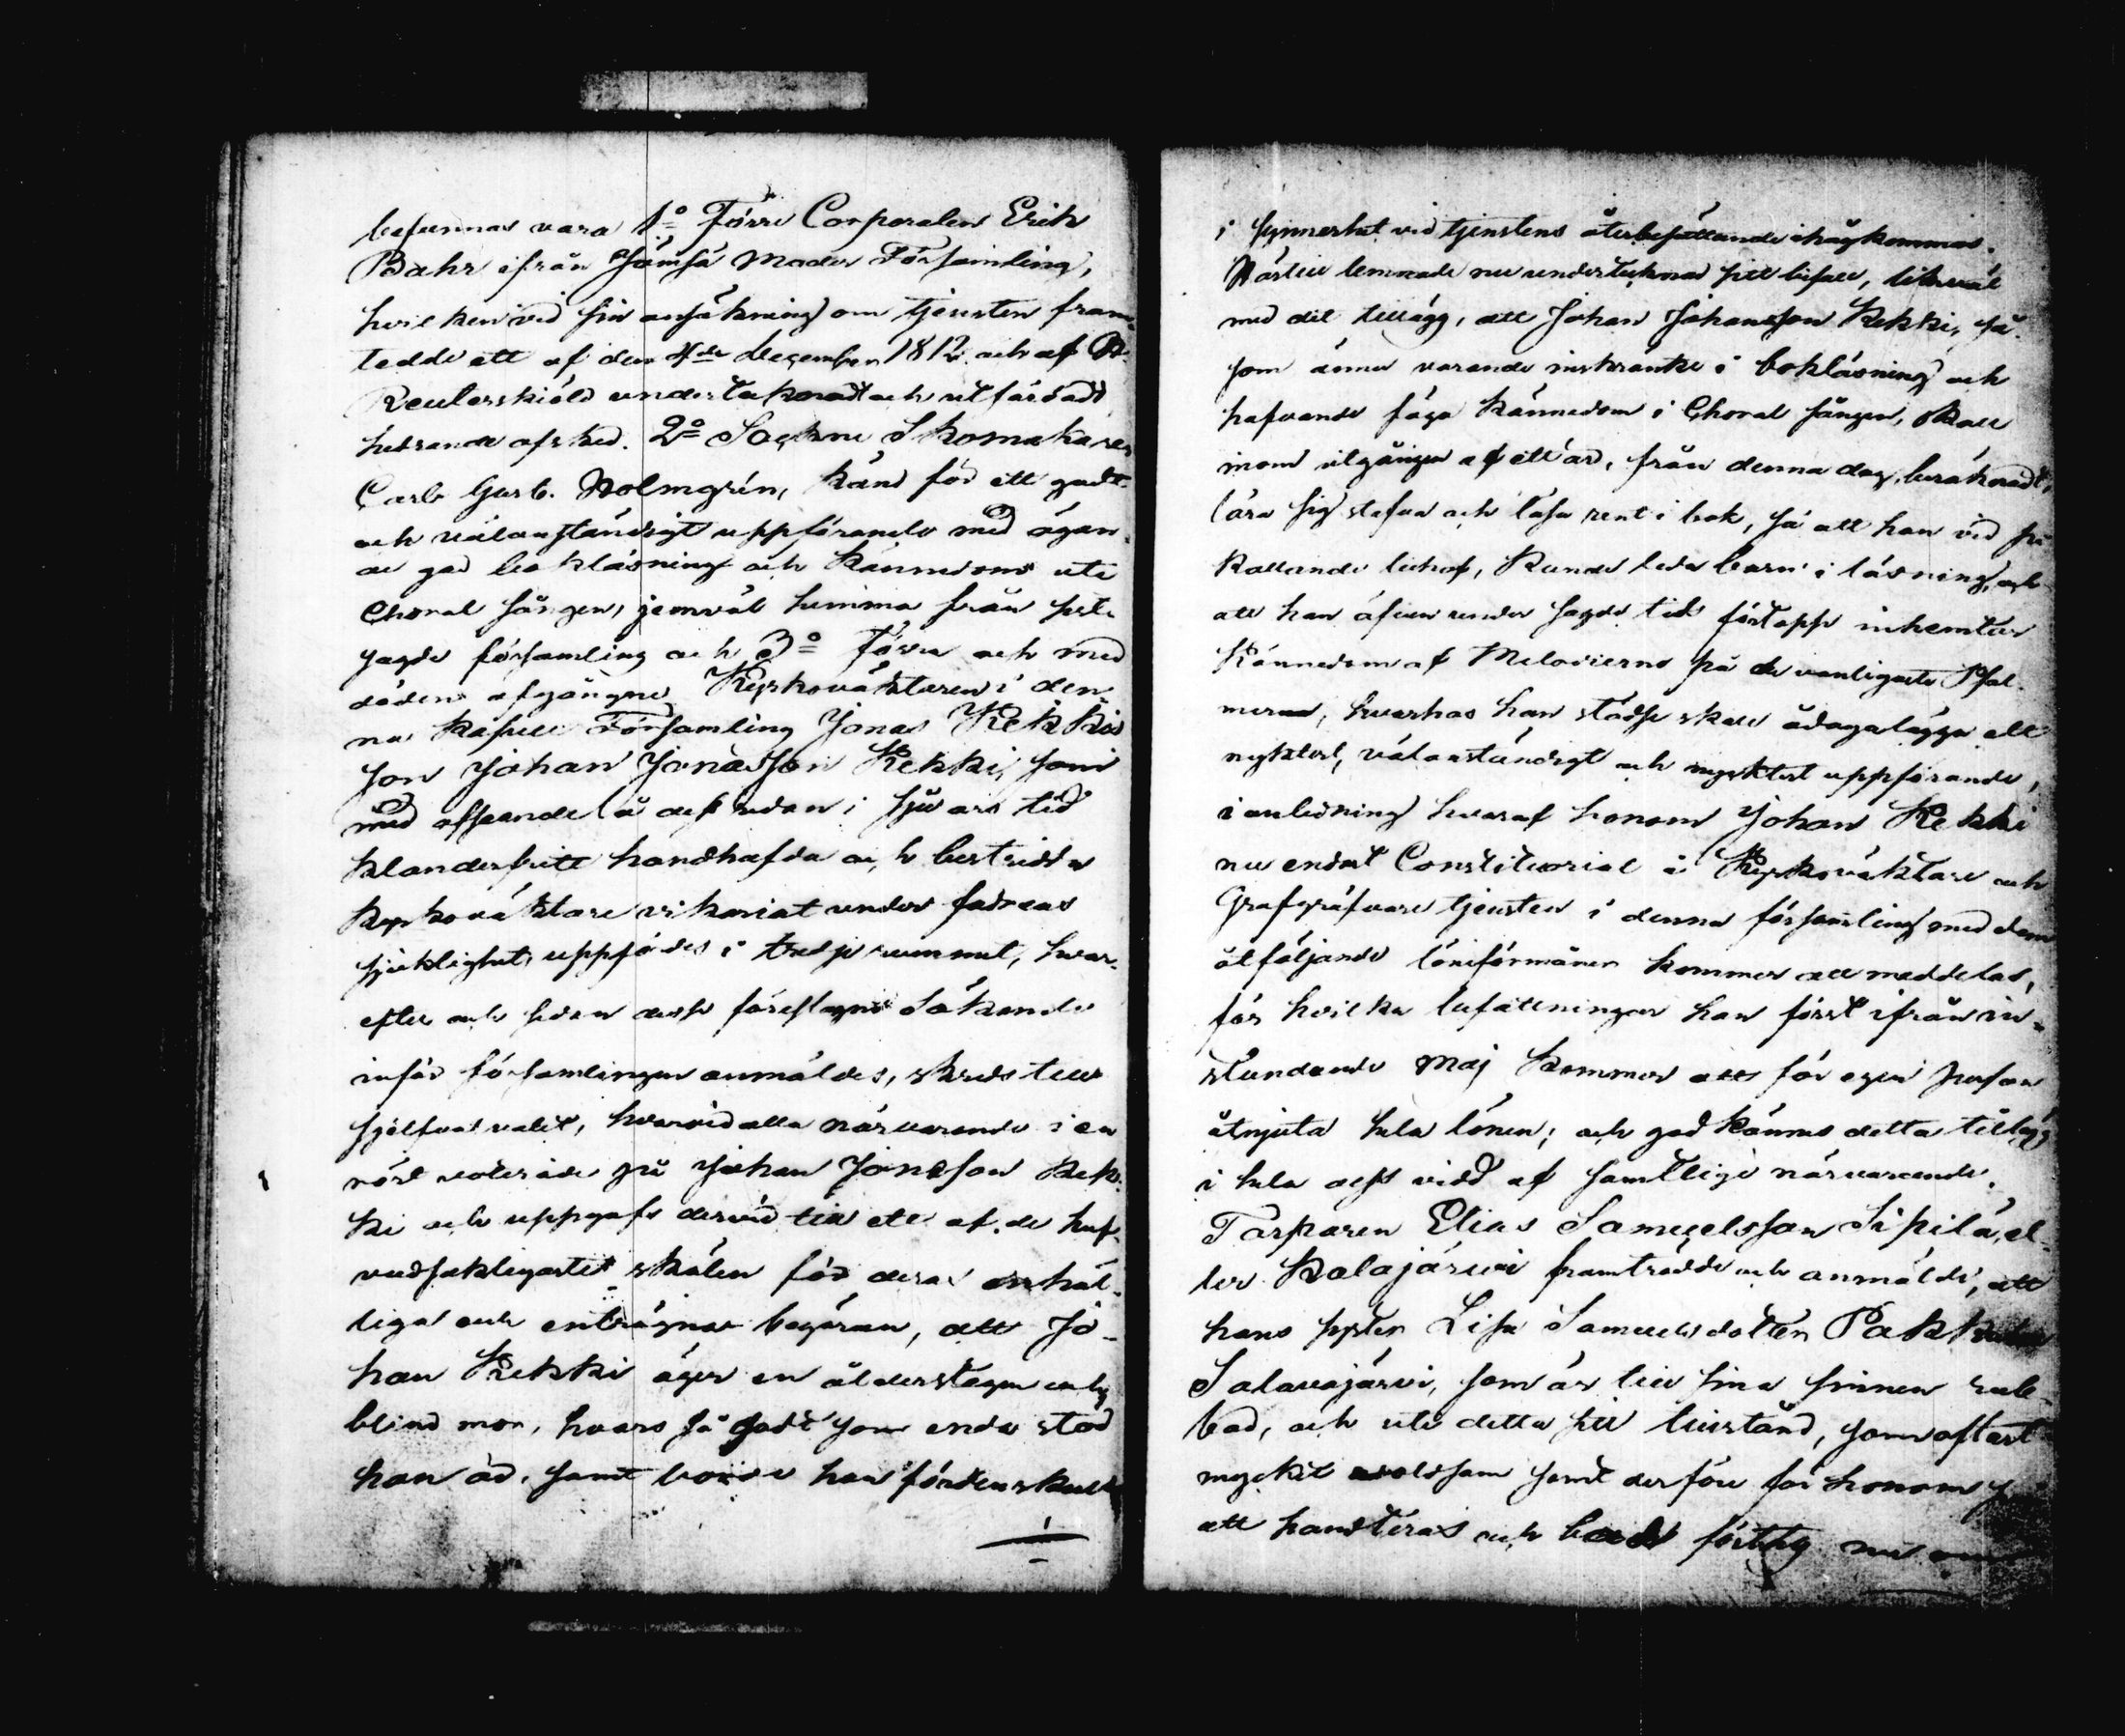 befunnas vara 1º Förre Corporalen Erik
Bahr ifrån Jämsä Moder Församling,
hvilken vid sin ansökning om tjensten fram-
tedde ett af den 4de December 1812 och af A.
Reuterskiöld undertecknadt och utfärdadt
hedrande afsked. 2º Sockne Skomakaren
Carl Gust. Holmgrén, känd för ett godt
och välanständigt uppförande med ägan-
de god bokläsning och kännedom uti
Choral sången, jemväl hemma från sist-
sagde församling och 3º förre och med
döden afgångne Kyrkoväktaren i den-
na Kapell Församling Jonas Kekkis
son Johan Jonasson Kekki, som
med afseende å dess redan i sju års tid
klanderfritt handhafda och bestridda
kyrkoväktare vikariat under fadrens
sjuklighet, uppfördes i tredje rummet, hvar-
efter och sedan desse föreslagne Sökande
inför församlingen anmäldes, skreds till
sjelfva valet, hvarvid alla närvarande i en
röst voterade på Johan Jonasson Kek-
ki och uppgafs dervid till ett af de huf-
vudsakligaste skälen för deras enhäl-
liga och enträgna begäran, att Jo-
han Kekki äger en ålderstegen och
blind mor, hvars så godt som enda stöd
han är, samt borde han fördenskull
i synnerhet vid tjenstens återbesättande ihågkommas.
Härtill lemnade nu undertecknad sitt bifall, likväl
med det tillägg, att Johan Johansson Kekki, så-
som ännu varande inskränkt i bokläsning och
hafvande föga kännedom i Choral sången, skall
inom utgången af ett år, från denna dag beräknadt,
lära sig stafva och läsa rent i bok, så att han vid på-
kallande behof, kunde leda barn i läsning, och
att han äfven under sagde tid förtopp inhemtar
kännedom af Melodierne på de vanligaste Psal-
merna, hvarhos han städse skall ådagalägga ett
nyktert, välanständigt och mycktert uppförande,
i anledning hvaraf honom Johan Kekki
nu endast Constitutorial å Kyrkoväktare och
Grafgräfvare tjensten i denna församling med dem
åtföljande löneförmåner kommer att meddelas,
för hvilka befattningar han först ifrån in-
stundande Maj kommer att för egen person
åtnjuta hela lönen; och godkännes detta tillägg
i hela dess vidd af samtlige närvarande.
Torparen Elias Samuelsson Sipilä, el-
ler Kalajärvi framträdde och anmälde, att
hans syster Lisa Samuelsdotter Pakk
Salavajärvi, som är till sina sinnen rub-
bad, och uti detta sitt tillstånd, som oftast
mycket våldsam samt derföre för honom
att handteras och bad förty nu